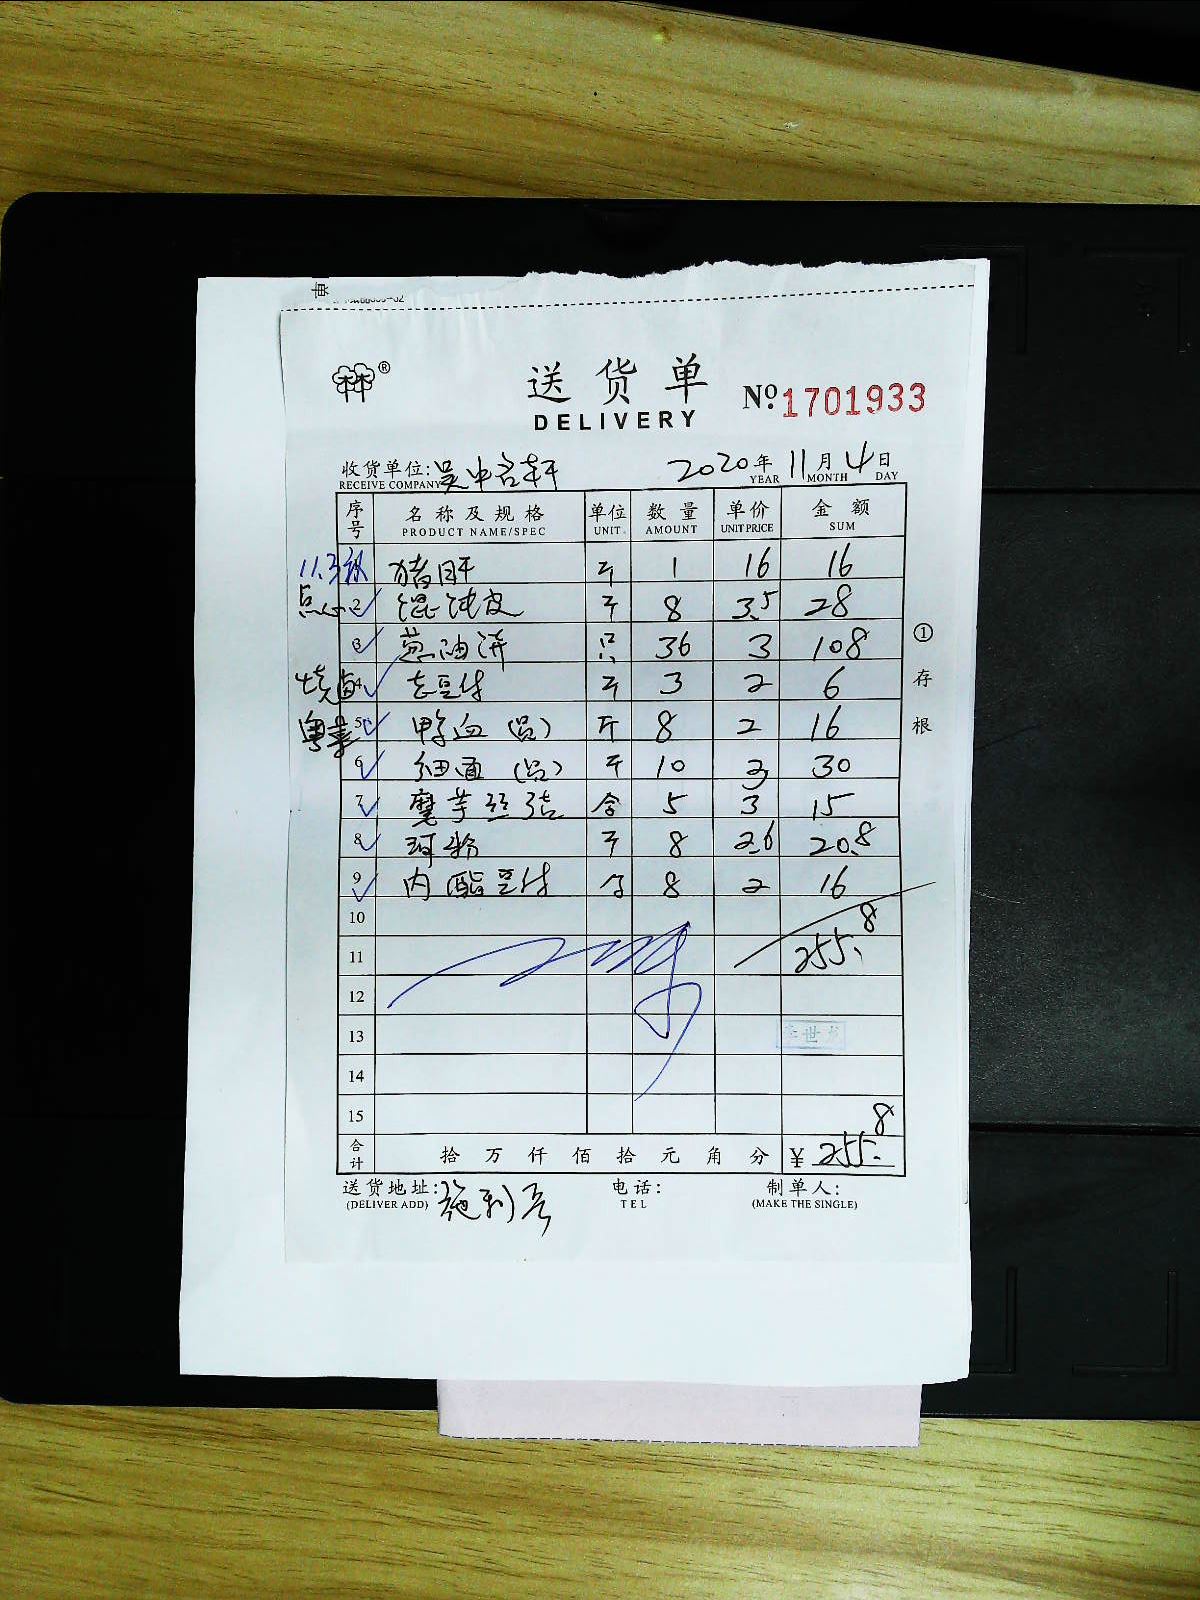 单
林®
送货单
DELIVERY
No.1701933
收货单位:吴中名轩 2020年11月4日
RECEIVE COMPANY YEAR MONTH DAY
序号 名称及规格 单位 数量 单价 金额
PRODUCT NAME/SPEC UNIT. AMOUNT UNIT PRICE SUM
11.3 猪肝 斤 1 16 16
点心 2 馄饨皮 斤 8 3.5 28
3 葱油饼 只 36 3 108
烧卤 4 老豆付 斤 3 2 6
粤菜 5 鸭血(员) 斤 8 2 16
6 细面(员) 斤 10 3 30
7 魔芋丝结 合 5 3 15
8 河粉 斤 8 2.6 20.8
9 内酯豆付 合 8 2 16
10
11 255.8
12
13 李世龙
14
15
合计 拾万仟佰拾元角分 ¥255.8
送货地址:施利 电话: 制单人:
(DELIVER ADD) TEL (MAKE THE SINGLE)
①存根